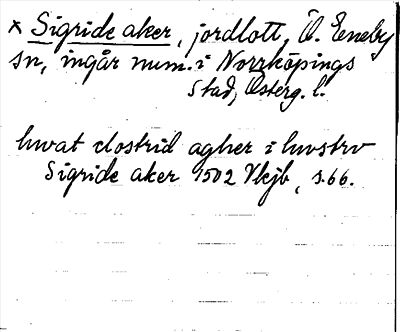 × Sigride aker, jordlott, Ö. Eneby
sn, ingår num. i Norrköpings
stad, Österg. l.
hwat clostrid agher i huvstrv
Sigride aker 1502 Vkjb, s. 66.